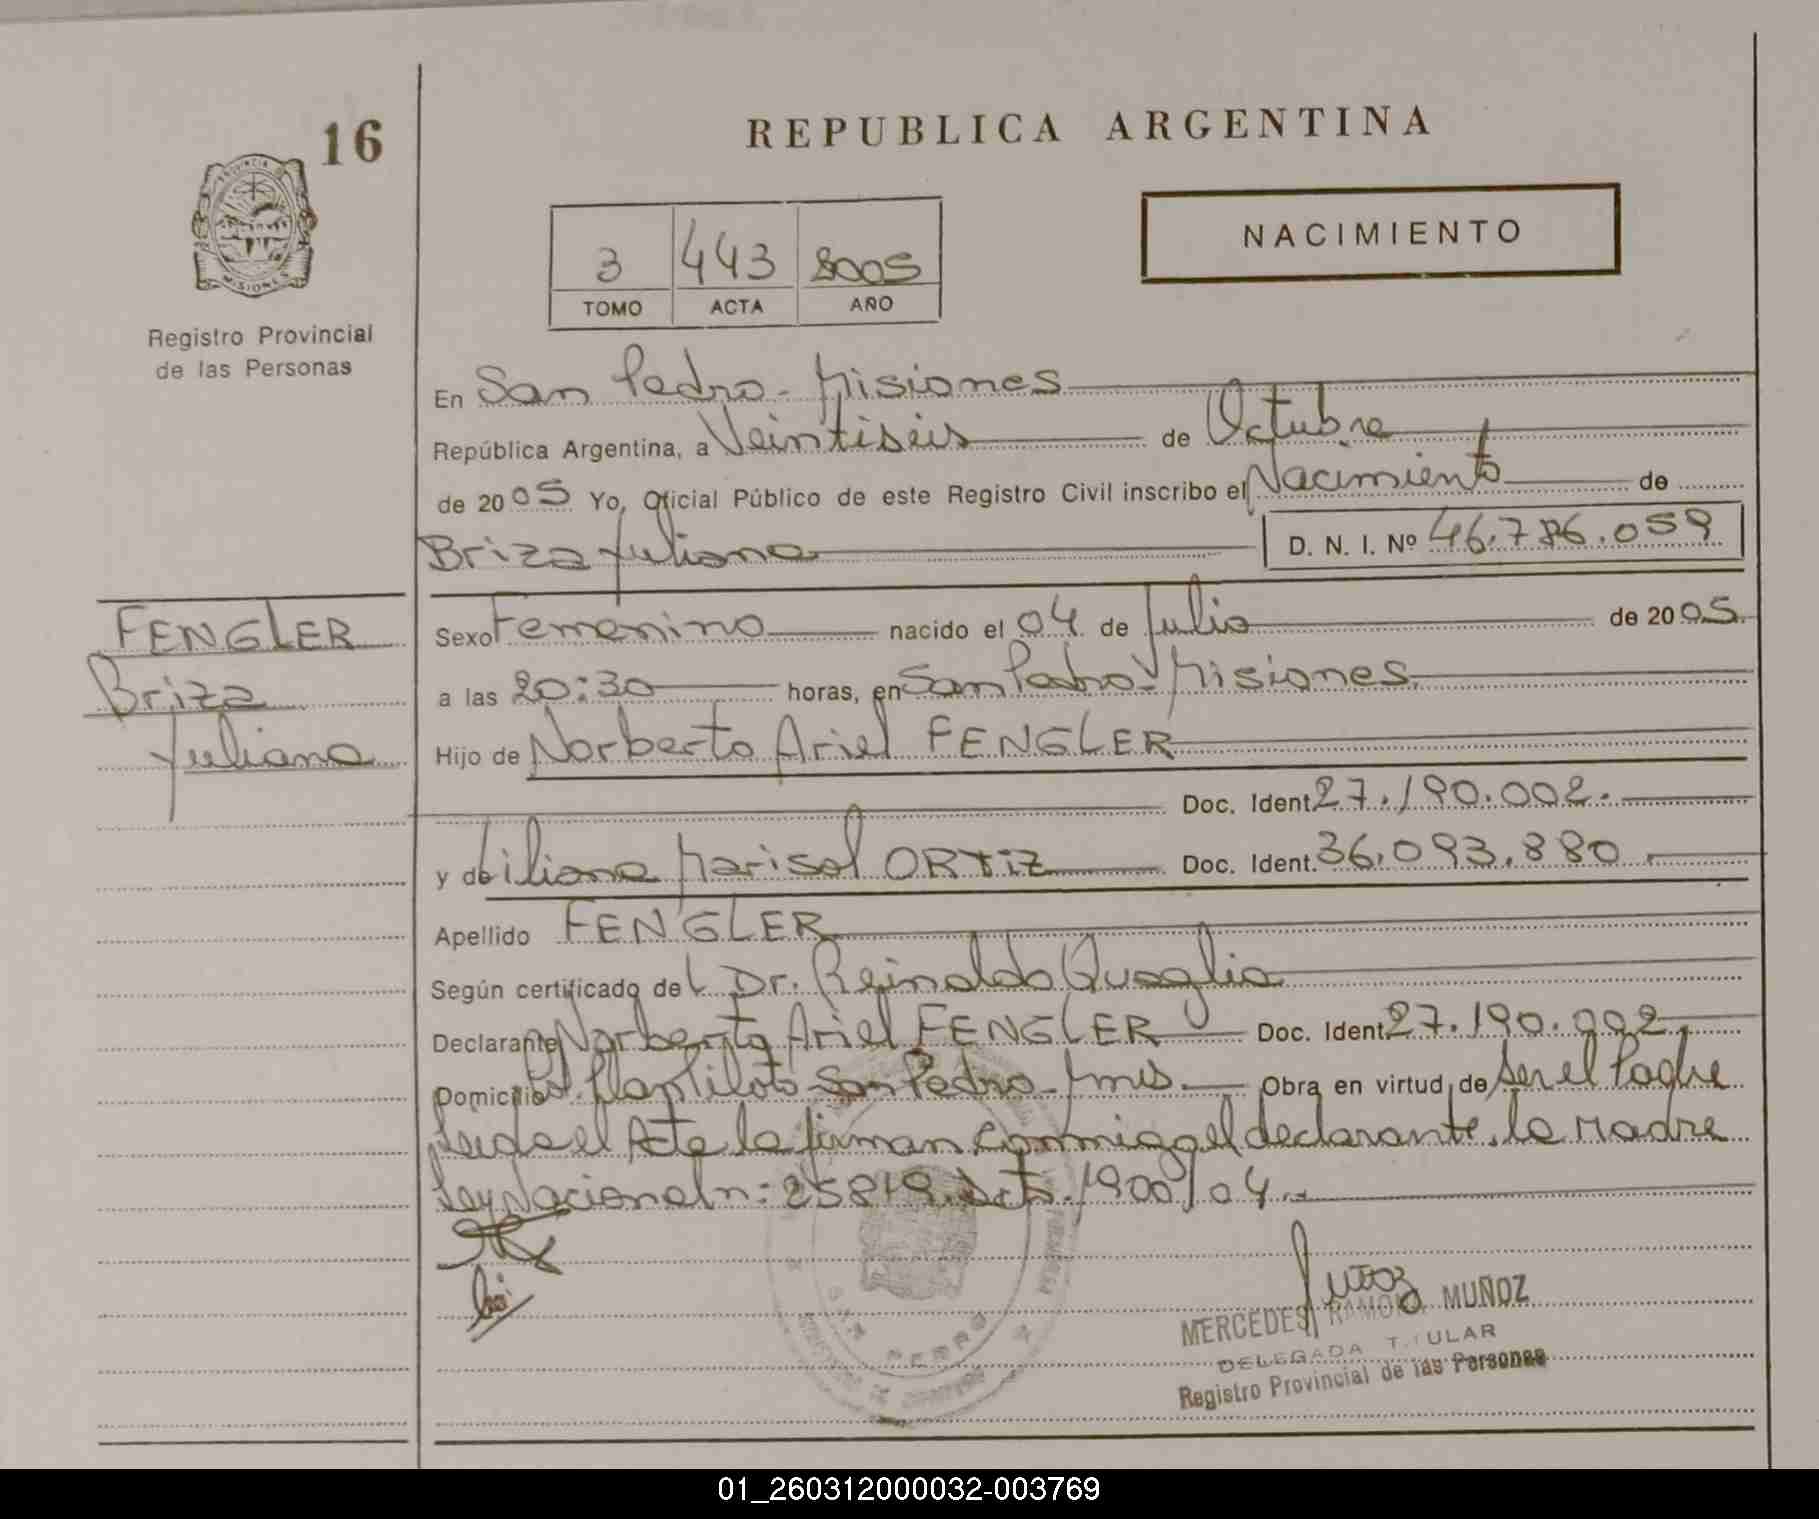 16
REPUBLICA ARGENTINA
NACIMIENTO
3 443 2005
TOMO ACTA AÑO
Registro Provincial
de las Personas
En San Pedro - Misiones
República Argentina, a Veintiseis de Octubre
de 2005 Yo, Oficial Público de este Registro Civil inscribo el Nacimiento de
Briza Juliana D. N. I. Nº 46.786.059
FENGLER
Briza
Juliana
Sexo Femenino nacido el 04 de Julio de 2005
a las 20:30 horas, en San Pedro - Misiones
Hijo de Norberto Ariel FENGLER
Doc. Ident. 27.190.002.
y de Liliana Marisol ORTIZ Doc. Ident. 36.093.880
Apellido FENGLER
Según certificado del Dr. Reinaldo Quaglia
Declarante Norberto Ariel FENGLER Doc. Ident. 27.190.002
Domicilio San Pedro - Mnes. Obra en virtud de ser el Padre
Leida el Acta la firman conmigo el declarante, la Madre
Ley Nacional n: 25819. Dcto. 1900/04.-
MERCEDES RAMONA MUÑOZ
DELEGADA TITULAR
Registro Provincial de las Personas
01_260312000032-003769